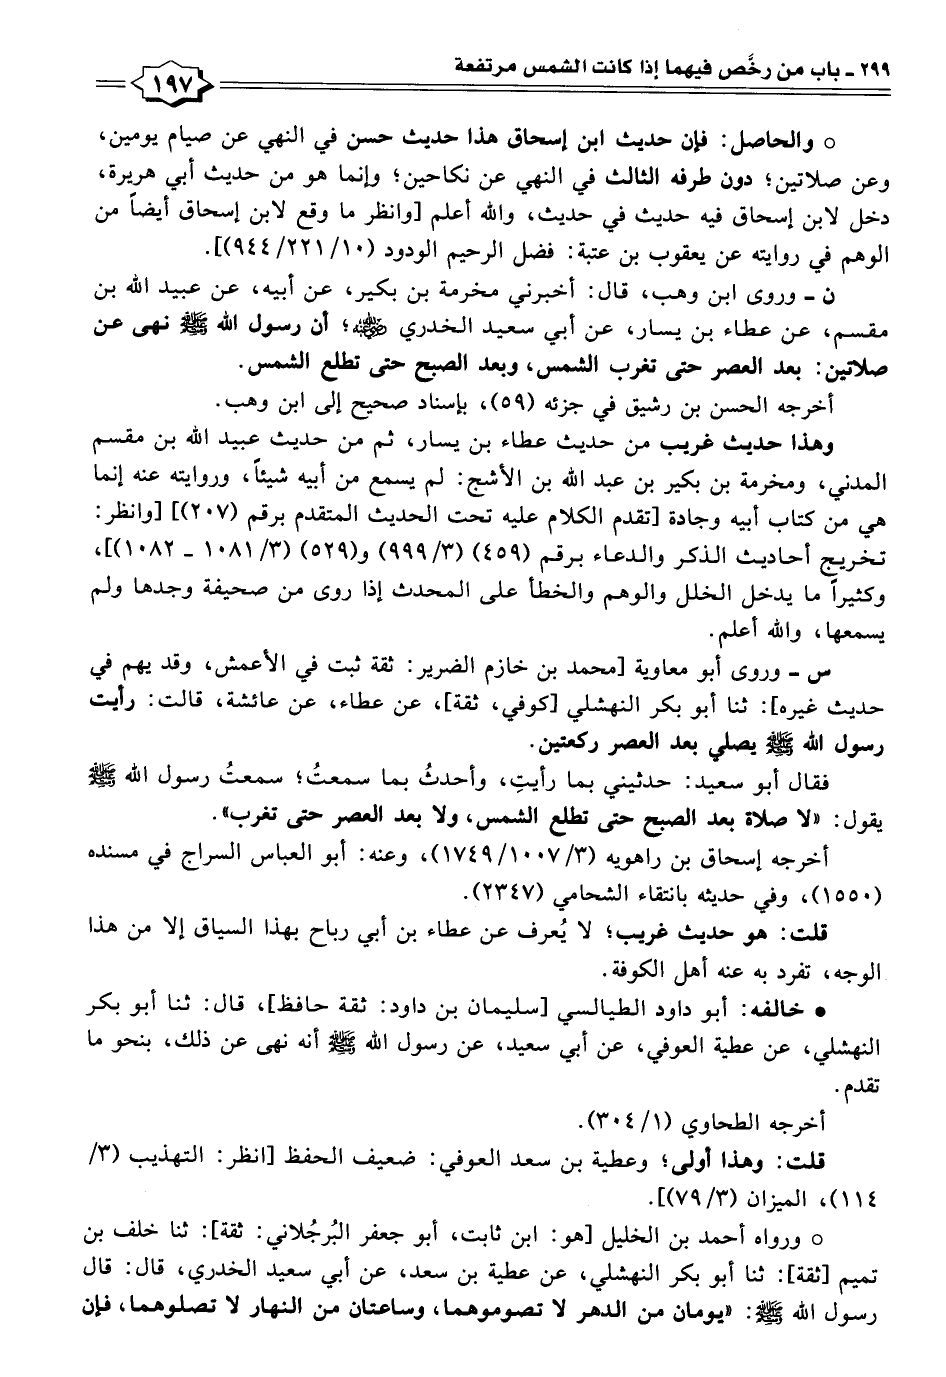 ٢٩٩ ـ باب من رخَّص فيهما إذا كانت الشمس مرتفعة
١٩٧
○ والحاصل: فإن حديث ابن إسحاق هذا حديث حسن في النهي عن صيام يومين،
وعن صلاتين؛ دون طرفه الثالث في النهي عن نكاحين؛ وإنما هو من حديث أبي هريرة،
دخل لابن إسحاق فيه حديث في حديث، والله أعلم [وانظر ما وقع لابن إسحاق أيضاً من
الوهم في روايته عن يعقوب بن عتبة: فضل الرحيم الودود (١٠/ ٢٢١/ ٩٤٤)].
ن ـ وروى ابن وهب، قال: أخبرني مخرمة بن بكير، عن أبيه، عن عبيد الله بن
مقسم، عن عطاء بن يسار، عن أبي سعيد الخدري رضي الله عنه؛ أن رسول الله ﷺ نهى عن
صلاتين: بعد العصر حتى تغرب الشمس، وبعد الصبح حتى تطلع الشمس.
أخرجه الحسن بن رشيق في جزئه (٥٩)، بإسناد صحيح إلى ابن وهب.
وهذا حديث غريب من حديث عطاء بن يسار، ثم من حديث عبيد الله بن مقسم
المدني، ومخرمة بن بكير بن عبد الله بن الأشج: لم يسمع من أبيه شيئاً، وروايته عنه إنما
هي من كتاب أبيه وجادة [تقدم الكلام عليه تحت الحديث المتقدم برقم (٢٠٧)] [وانظر:
تخريج أحاديث الذكر والدعاء برقم (٤٥٩) (٣/ ٩٩٩) و(٥٢٩) (٣/ ١٠٨١ ـ ١٠٨٢)]،
وكثيراً ما يدخل الخلل والوهم والخطأ على المحدث إذا روى من صحيفة وجدها ولم
يسمعها، والله أعلم.
س ـ وروى أبو معاوية [محمد بن خازم الضرير: ثقة ثبت في الأعمش، وقد يهم في
حديث غيره]: ثنا أبو بكر النهشلي [كوفي، ثقة]، عن عطاء، عن عائشة، قالت: رأيت
رسول الله ﷺ يصلي بعد العصر ركعتين.
فقال أبو سعيد: حدثيني بما رأيتِ، وأحدثُ بما سمعتُ؛ سمعتُ رسول الله ﷺ
يقول: «لا صلاة بعد الصبح حتى تطلع الشمس، ولا بعد العصر حتى تغرب».
أخرجه إسحاق بن راهويه (٣/ ١٠٠٧/ ١٧٤٩)، وعنه: أبو العباس السراج في مسنده
(١٥٥٠)، وفي حديثه بانتقاء الشحامي (٢٣٤٧).
قلت: هو حديث غريب؛ لا يُعرف عن عطاء بن أبي رباح بهذا السياق إلا من هذا
الوجه، تفرد به عنه أهل الكوفة.
● خالفه: أبو داود الطيالسي [سليمان بن داود: ثقة حافظ]، قال: ثنا أبو بكر
النهشلي، عن عطية العوفي، عن أبي سعيد، عن رسول الله ﷺ أنه نهى عن ذلك، بنحو ما
تقدم.
أخرجه الطحاوي (١/ ٣٠٤).
قلت: وهذا أولى؛ وعطية بن سعد العوفي: ضعيف الحفظ [انظر: التهذيب (٣/
١١٤)، الميزان (٣/ ٧٩)].
○ ورواه أحمد بن الخليل [هو: ابن ثابت، أبو جعفر البُرجُلاني: ثقة]: ثنا خلف بن
تميم [ثقة]: ثنا أبو بكر النهشلي، عن عطية بن سعد، عن أبي سعيد الخدري، قال: قال
رسول الله ﷺ: «يومان من الدهر لا تصوموهما، وساعتان من النهار لا تصلوهما، فإن